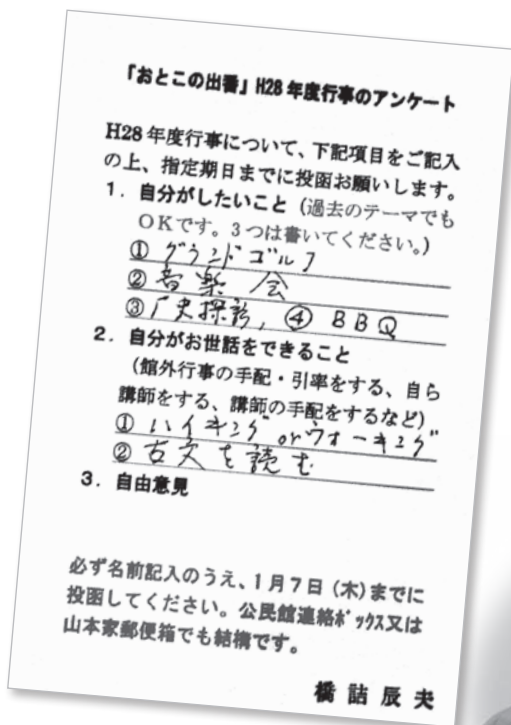 「おとこの出番」H28年度行事のアンケート
H28年度行事について、下記項目をご記入
の上、指定期日までに投函お願いします。
1. 自分がしたいこと（過去のテーマでも
OKです。3つは書いてください。）
① グラウンドゴルフ
② 音楽会
③ 史探訪, ④ BBQ
2. 自分がお世話をできること
（館外行事の手配・引率をする、自ら
講師をする、講師の手配をするなど）
① ハイキング or ウォーキング
② 古文を読む
3. 自由意見
必ず名前記入のうえ、1月7日（木）までに
投函してください。公民館連絡ボックス又は
山本家郵便箱でも結構です。
橋詰辰夫